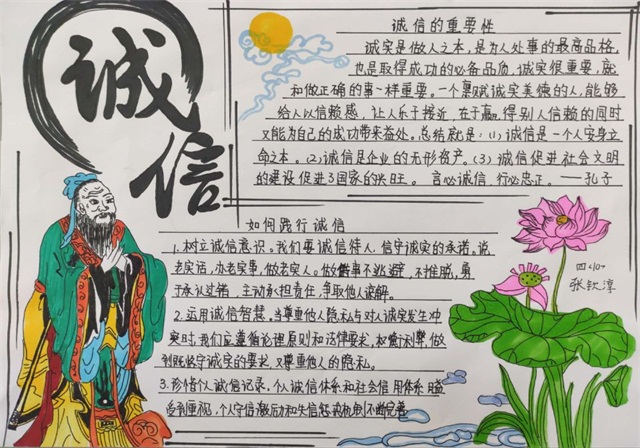 诚信
诚信的重要性
诚实是做人之本,是为人处事的最高品格,
也是取得成功的必备品质,诚实很重要,就
和做正确的事一样重要。一个禀赋诚实美德的人,能够
给人以信赖感,让人乐于接近,在于赢得别人信赖的同时
又能为自己的成功带来益处。总结就是:(1)诚信是一个人安身立
命之本。(2)诚信是企业的无形资产。(3)诚信促进社会文明
的建设促进3国家的兴旺。 言必诚信,行必忠正。——孔子
如何践行诚信
1.树立诚信意识。我们要诚信待人,信守诚实的承诺。说
老实话,办老实事,做老实人。做事不逃避,不推脱,勇
于承认过错,主动承担责任,争取他人谅解。
2.运用诚信智慧,当尊重他人隐私与对人诚实发生冲
突时,我们应遵循伦理原则和法律要求,权衡利弊,做
到既恪守诚实的要求,又尊重他人的隐私。
3.珍惜个人诚信记录,个人诚信体系和社会信用体系日益
受到重视,个守信激励和失信惩戒机制不断完善
四(10)
张钦淳